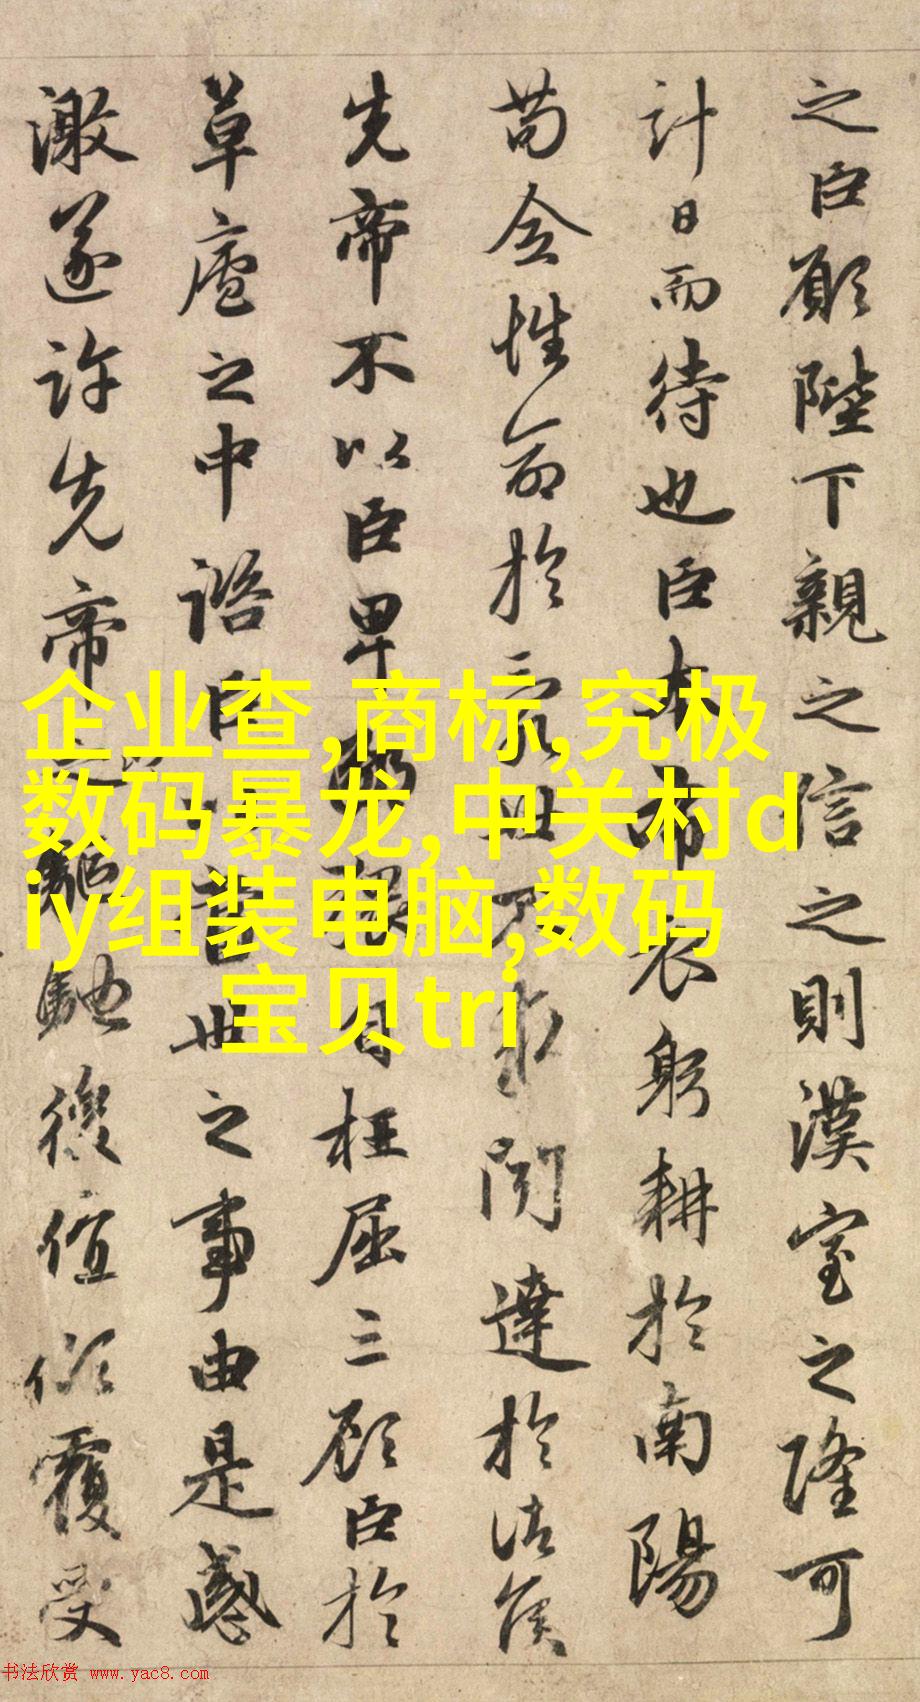 之臣願陛下親之信之則漢室之隆可
計日而待也臣本布衣躬耕於南陽
苟全性命於亂世不求聞達於諸侯
先帝不以臣卑鄙猥自枉屈三顧臣於
草廬之中諮臣以當世之事由是感
激遂許先帝以驅馳後值傾覆受
企业查,商标,究极
数码暴龙,中关村d
iy组装电脑,数码
宝贝tri
书法欣赏 www.yac8.com